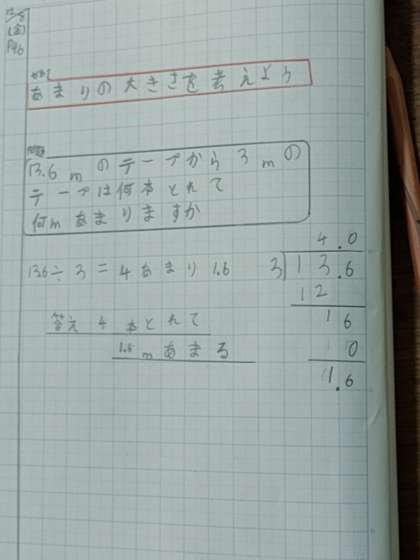 (金)
P46
あまりの大きさを考えよう
問題
13.6mのテープから3mの
テープは何本とれて
何mあまりますか
13.6÷3=4あまり1.6
答え 4本とれて
1.6mあまる
4.0
3)13.6
12
16
0
1.6